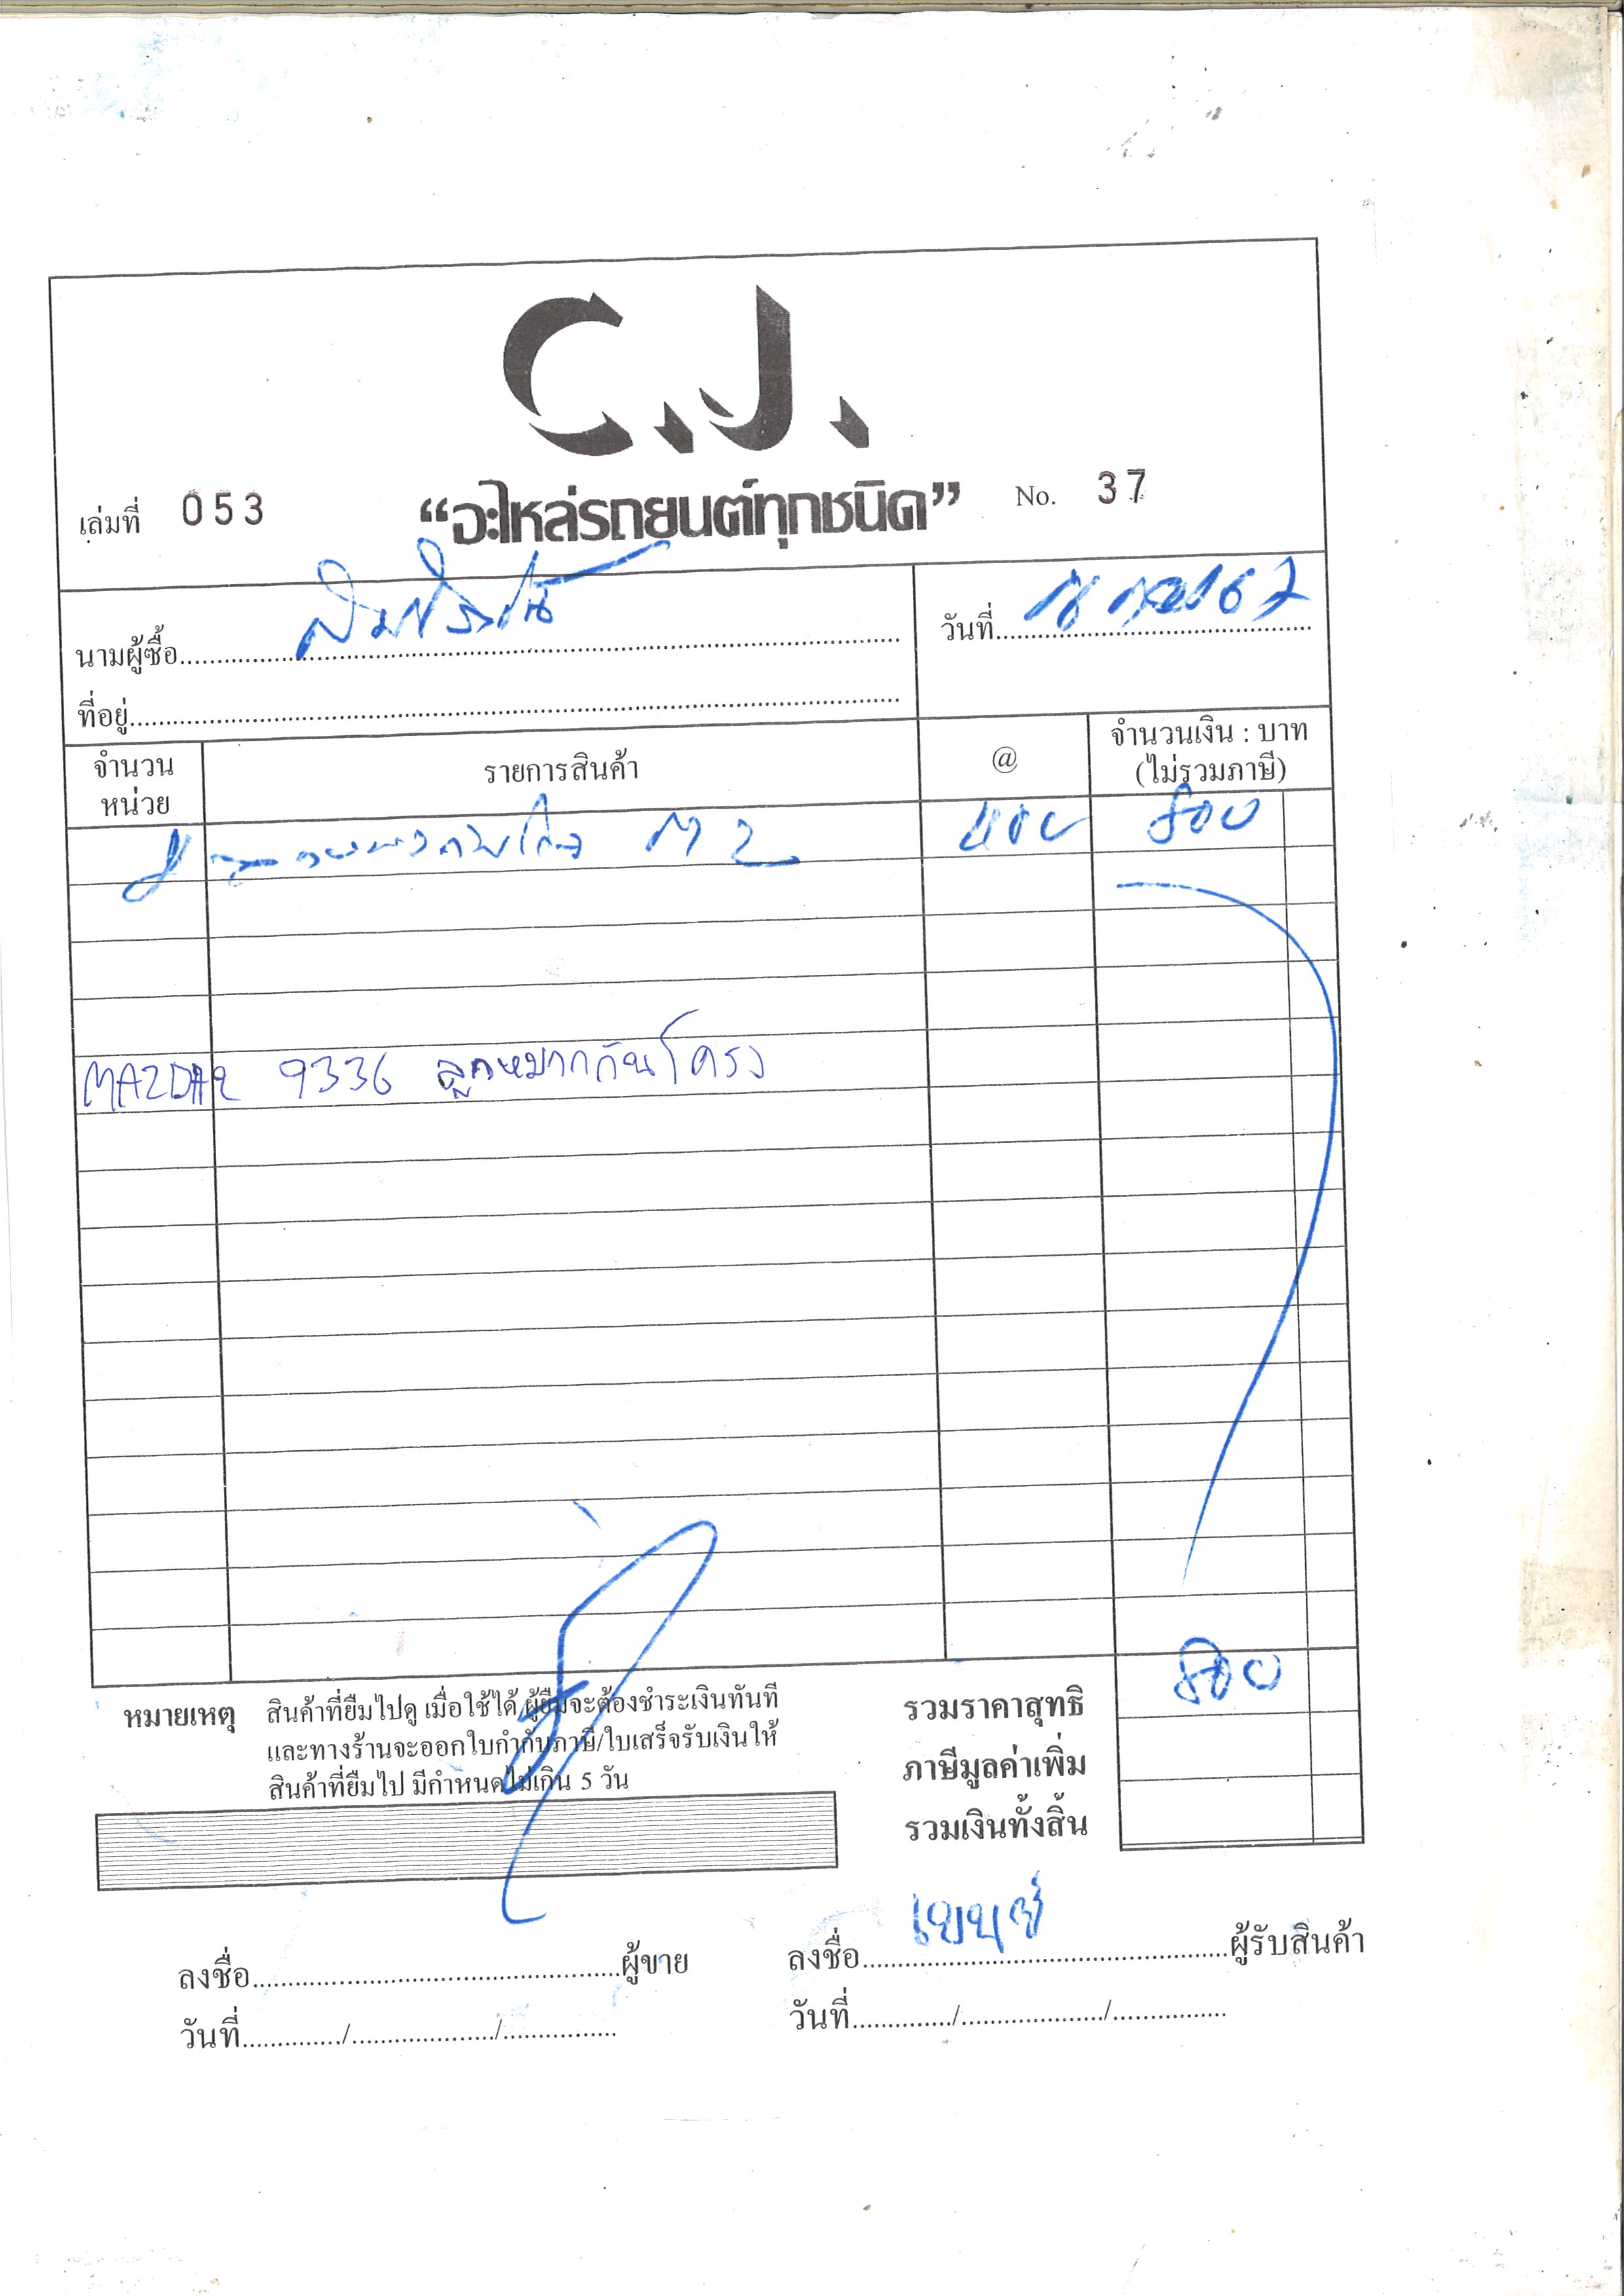 C.J.
เล่มที่ 053 “อะไหล่รถยนต์ทุกชนิด” No. 37
นามผู้ซื้อ วันที่ 67
ที่อยู่
จำนวนหน่วย รายการสินค้า @ จำนวนเงิน : บาท (ไม่รวมภาษี)
กันโคลง M 2 400 800
MAZDA2 9336 ลูกหมากกันโครง
หมายเหตุ สินค้าที่ยืมไปดู เมื่อใช้ได้ ผู้ยืมจะต้องชำระเงินทันที
และทางร้านจะออกใบกำกับภาษี/ใบเสร็จรับเงินให้
สินค้าที่ยืมไป มีกำหนดไม่เกิน 5 วัน
รวมราคาสุทธิ 800
ภาษีมูลค่าเพิ่ม
รวมเงินทั้งสิ้น
ลงชื่อ ผู้ขาย ลงชื่อ ผู้รับสินค้า
วันที่ / / วันที่ / /